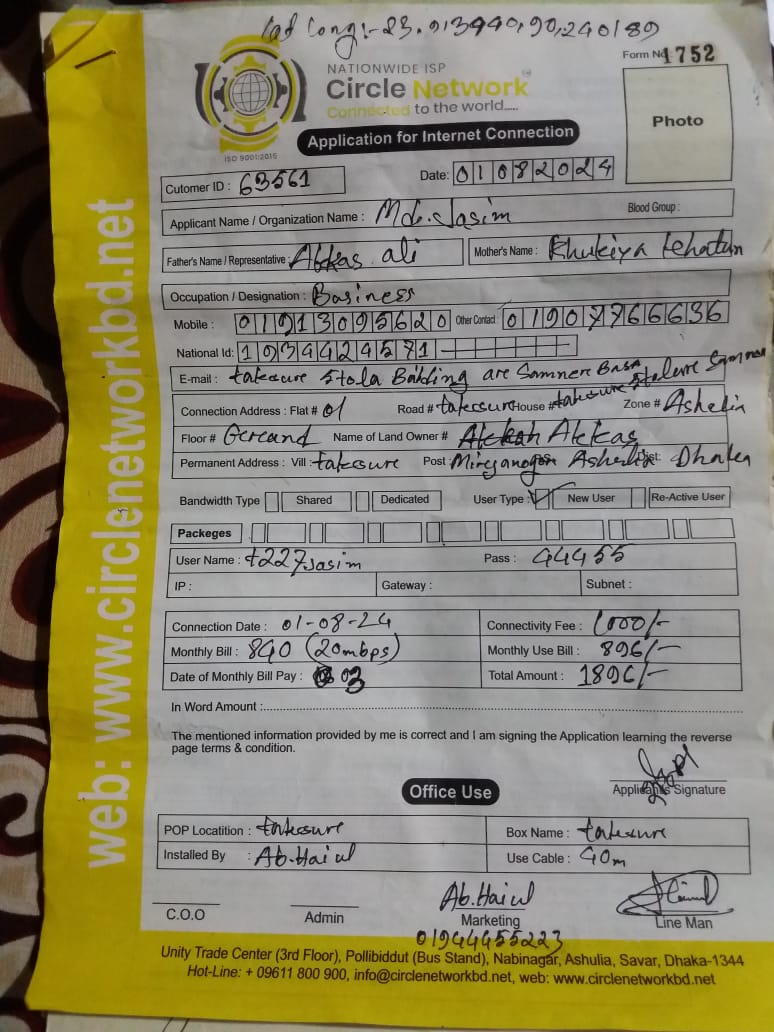 Lat Long:- 23.913940,90.240189
Form No 1752
NATIONWIDE ISP
Circle Network
Connected to the world.....
ISO 9001:2015
Application for Internet Connection
Photo
Cutomer ID : 63561
Date: 01082024
Applicant Name / Organization Name : Md. Jasim Blood Group :
Father's Name / Representative : Akkas ali Mother's Name : Khukiya
Occupation / Designation : Business
Mobile : 01913095620 Other Contact : 01907766636
National Id: 1934424571
E-mail : takesure 5tola Balding are Samnere Basa
Connection Address : Flat # 01 Road # takersur House # takesure Zone # Ashelia
Floor # Name of Land Owner # Akkas
Permanent Address : Vill : takesure Post : Dist: Dhaka
Bandwidth Type Shared Dedicated User Type : New User Re-Active User
Packeges
User Name : t227Jasim Pass : 44455
IP : Gateway : Subnet :
Connection Date : 01-08-24 Connectivity Fee : 1000/-
Monthly Bill : 840 (20mbps) Monthly Use Bill : 896/-
Date of Monthly Bill Pay : 03 Total Amount : 1896/-
In Word Amount :
The mentioned information provided by me is correct and I am signing the Application learning the reverse
page terms & condition.
Applicants Signature
Office Use
POP Locatition : takesure Box Name : takesure
Installed By : Ab.Haiul Use Cable : 40m
Ab.Haiul
C.O.O Admin Marketing Line Man
01944455223
Unity Trade Center (3rd Floor), Pollibiddut (Bus Stand), Nabinagar, Ashulia, Savar, Dhaka-1344
Hot-Line: + 09611 800 900, info@circlenetworkbd.net, web: www.circlenetworkbd.net
web: www.circlenetworkbd.net